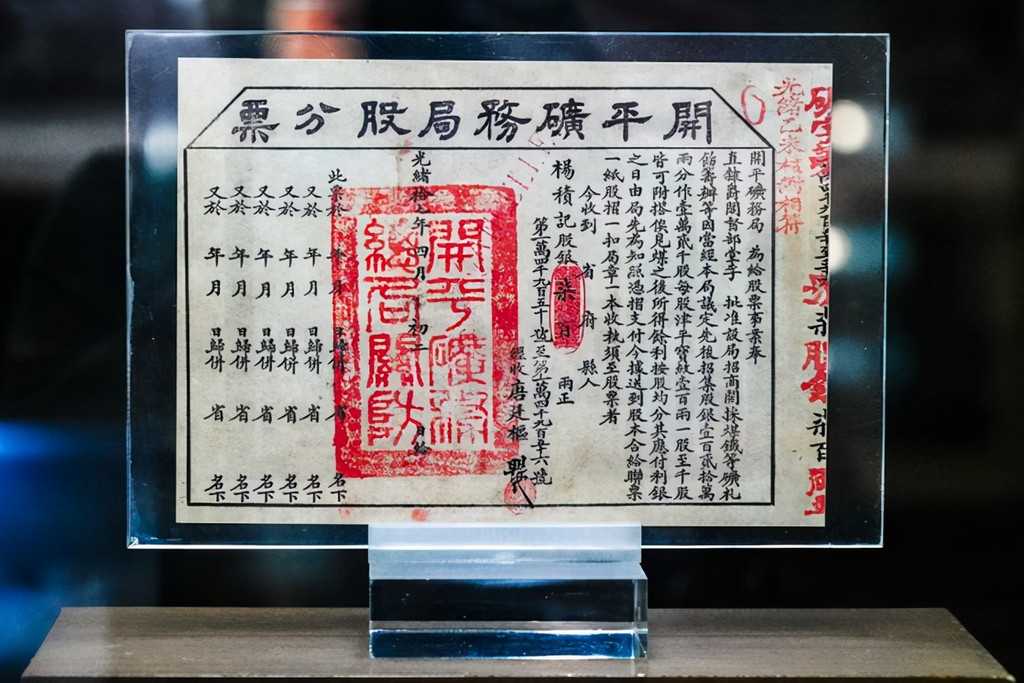 開平礦務局股分票
光緒乙未
開平礦務局 為給股票事案奉
直隸爵閣督部堂李 批准設局招商開採煤鐵等礦札
飭籌辦等因當經本局議定先後招集股銀壹百貳拾萬
兩分作壹萬貳千股每股津平寶紋壹百兩一股至千股
皆可附搭俟見煤之後所得餘利按股均分其應付利銀
之日由局先為知照憑摺支付今據送到股本合給聯票
一紙股摺一扣局章一本收執須至股票者
今收到 省 府 縣人
楊積記股銀 柒百 兩正
第一萬四千九百五十號至第一萬四千九百五十六號
經收 唐廷樞
光緒拾七年四月初二日給
開平礦務
總局關防
此票於 年 月 日歸併 省 名下
又於 年 月 日歸併 省 名下
又於 年 月 日歸併 省 名下
又於 年 月 日歸併 省 名下
又於 年 月 日歸併 省 名下
又於 年 月 日歸併 省 名下